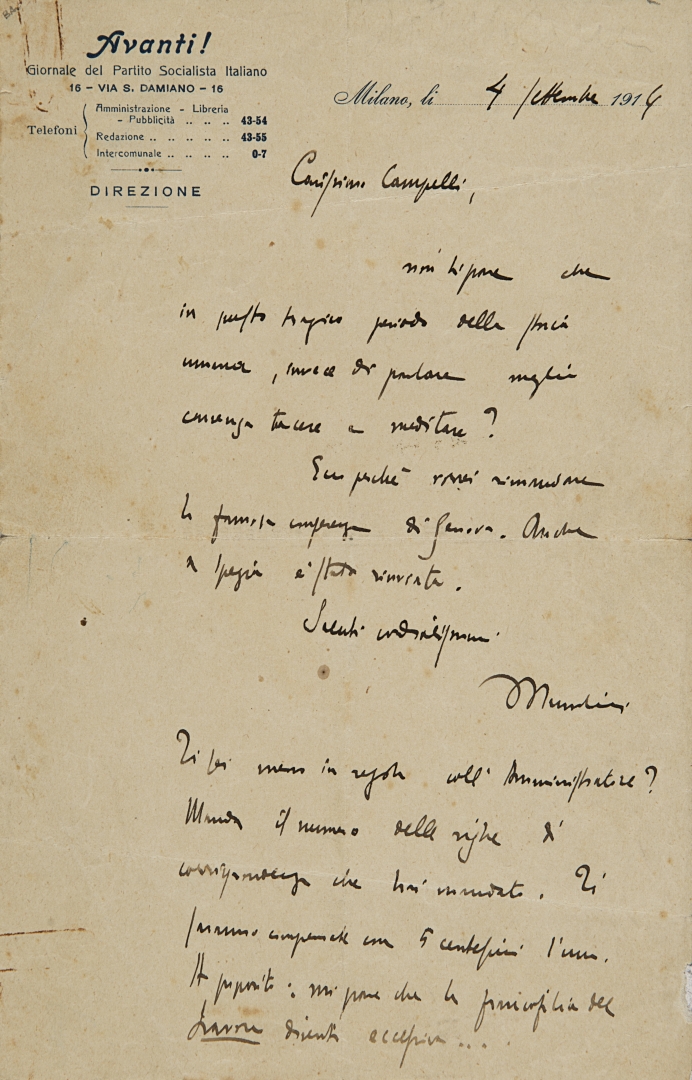 Avanti!
Giornale del Partito Socialista Italiano
16 - VIA S. DAMIANO - 16
Telefoni
Amministrazione - Libreria
- Pubblicità .. .. .. 43-54
Redazione .. .. .. .. .. 43-55
Intercomunale .. .. .. .. 0-7
DIREZIONE
Milano, li 4 settembre 1914
Carissimo Campelli,
non ti pare che
in questo tragico periodo della storia
umana, invece di parlare meglio
convenga tacere e meditare?
Ecco perchè vorrei rimandare
la famosa conferenza di Genova. Anche
a Spezia è stata rinviata.
Saluti cordialissimi
Mussolini
Ti sei messo in regola coll' Amministratore?
Manda il numero delle righe di
corrispondenza che hai mandato. Ti
saranno compensate con 5 centesimi l'una.
A proposito: mi pare che la francofilia del
Lavoro diventi eccessiva....